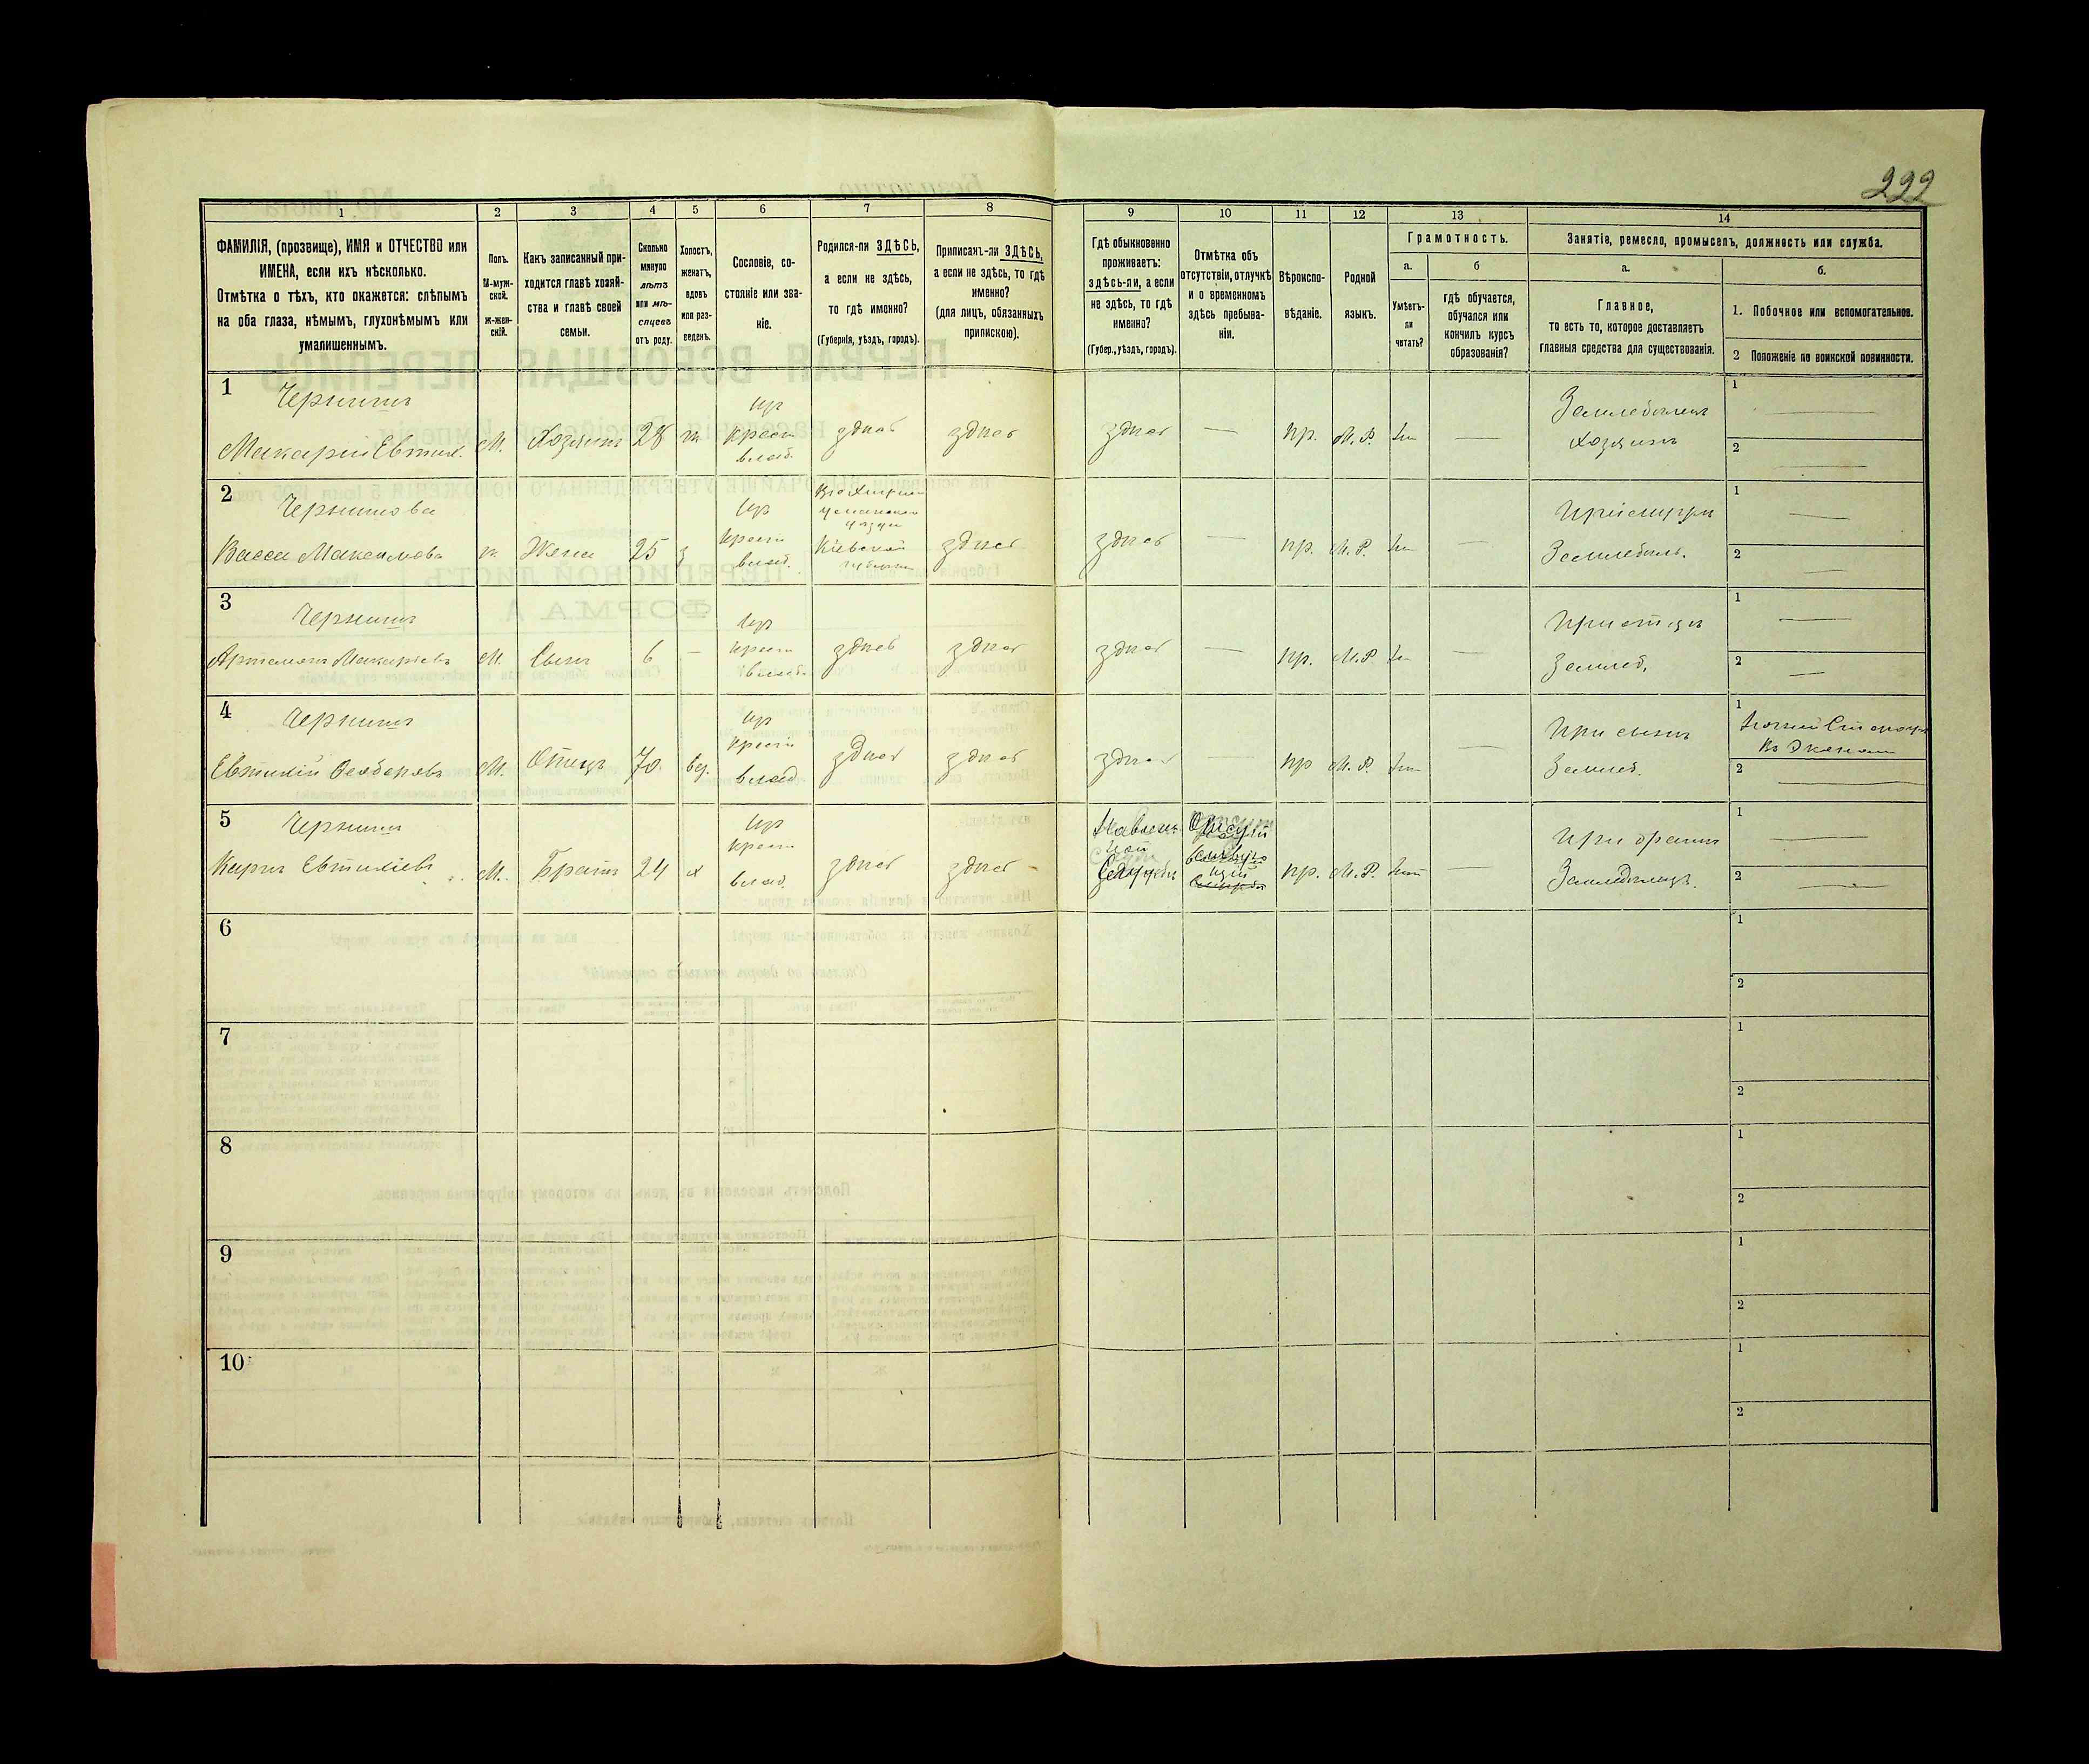 222
1
2
3
4
5
6
7
8
9
10
11
12
13
14
ФАМИЛІЯ, (прозвище), ИМЯ и ОТЧЕСТВО или
ИМЕНА, если ихъ нѣсколько.
Отмѣтка о тѣхъ, кто окажется: слѣпымъ
на оба глаза, нѣмымъ, глухонѣмымъ или
умалишеннымъ.
Полъ.
М-муж-
ской.
ж-жен-
скій.
Какъ записанный при-
ходится главѣ хозяй-
ства и главѣ своей
семьи.
Сколько
минуло
лѣтъ
или мѣ-
сяцевъ
отъ роду.
Холостъ,
женатъ,
вдовъ
или раз-
веденъ.
Сословіе, со-
стояніе или зва-
ніе.
Родился-ли ЗДѢСЬ,
а если не здѣсь,
то гдѣ именно?
(Губернія, уѣздъ, городъ).
Приписанъ-ли ЗДѢСЬ,
а если не здѣсь, то гдѣ
именно?
(для лицъ, обязанныхъ
припискою).
Гдѣ обыкновенно
проживаетъ:
здѣсь-ли, а если
не здѣсь, то гдѣ
именно?
(Губер., уѣздъ, городъ).
Отмѣтка объ
отсутствіи, отлучкѣ
и о временномъ
здѣсь пребыва-
ніи.
Вѣроиспо-
вѣданіе.
Родной
языкъ.
Грамотность.
а.
Умѣетъ-
ли
читать?
б
гдѣ обучается,
обучался или
кончилъ курсъ
образованія?
Занятіе, ремесло, промыселъ, должность или служба.
а.
Главное,
то есть то, которое доставляетъ
главныя средства для существованія.
б.
1. Побочное или вспомогательное.
2 Положеніе по воинской повинности.
1
Чернышъ
Макарій Евтих.
М.
Хозяинъ
28
ж
Из
крест
влад.
здѣсь
здѣсь
здѣсь
—
пр.
М. Р.
—
Земледѣлец
хозяинъ
1
—
2
—
2
Чернышова
Васса Максимова
ж
Жена
25
з
Из
крест
влад.
Уманскаго
уѣзда
Кіевской
губерніи
здѣсь
здѣсь
—
пр.
М. Р.
—
При мужѣ
Земледѣл.
1
—
2
—
3
Чернышъ
Артамонъ Макаріевъ
М.
Сынъ
6
—
Из
крест
влад.
здѣсь
здѣсь
здѣсь
—
пр.
М. Р.
—
При отцѣ
Землед.
1
—
2
—
4
Чернышъ
Евтихій Ѳеодоровъ
М.
Отецъ
70
вд.
Из
крест
влад.
здѣсь
здѣсь
здѣсь
—
пр
М. Р.
—
При сынѣ
Землед.
1
Ночной Сторожъ
2
—
5
Чернышъ
Киръ Евтихіевъ
М.
Братъ
24
х
Из
крест
влад.
здѣсь
здѣсь
пр.
М. Р.
—
При братѣ
Земледѣлецъ.
1
—
2
—
6
1
2
7
1
2
8
1
2
9
1
2
10
1
2